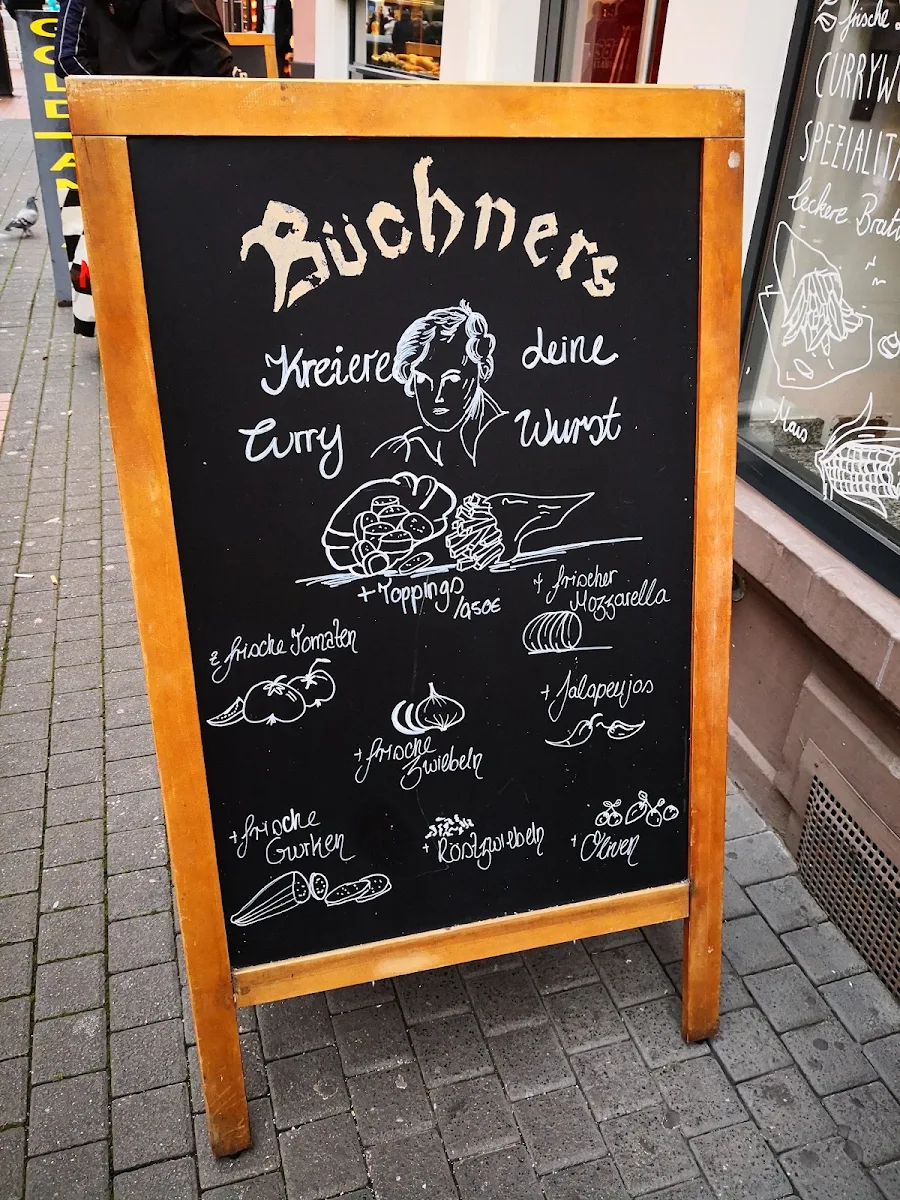 GOLDAN
Büchners
Kreiere deine
Curry Wurst
+ Toppings
/0,50€
+ frischer
Mozzarella
+ frische Tomaten
+ Jalapenjos
+ frische
Zwiebeln
+ frische
Gurken
+ Röstzwiebeln
+ Oliven
frische
CURRYW
SPEZIALITÄ
leckere Brat
Mais